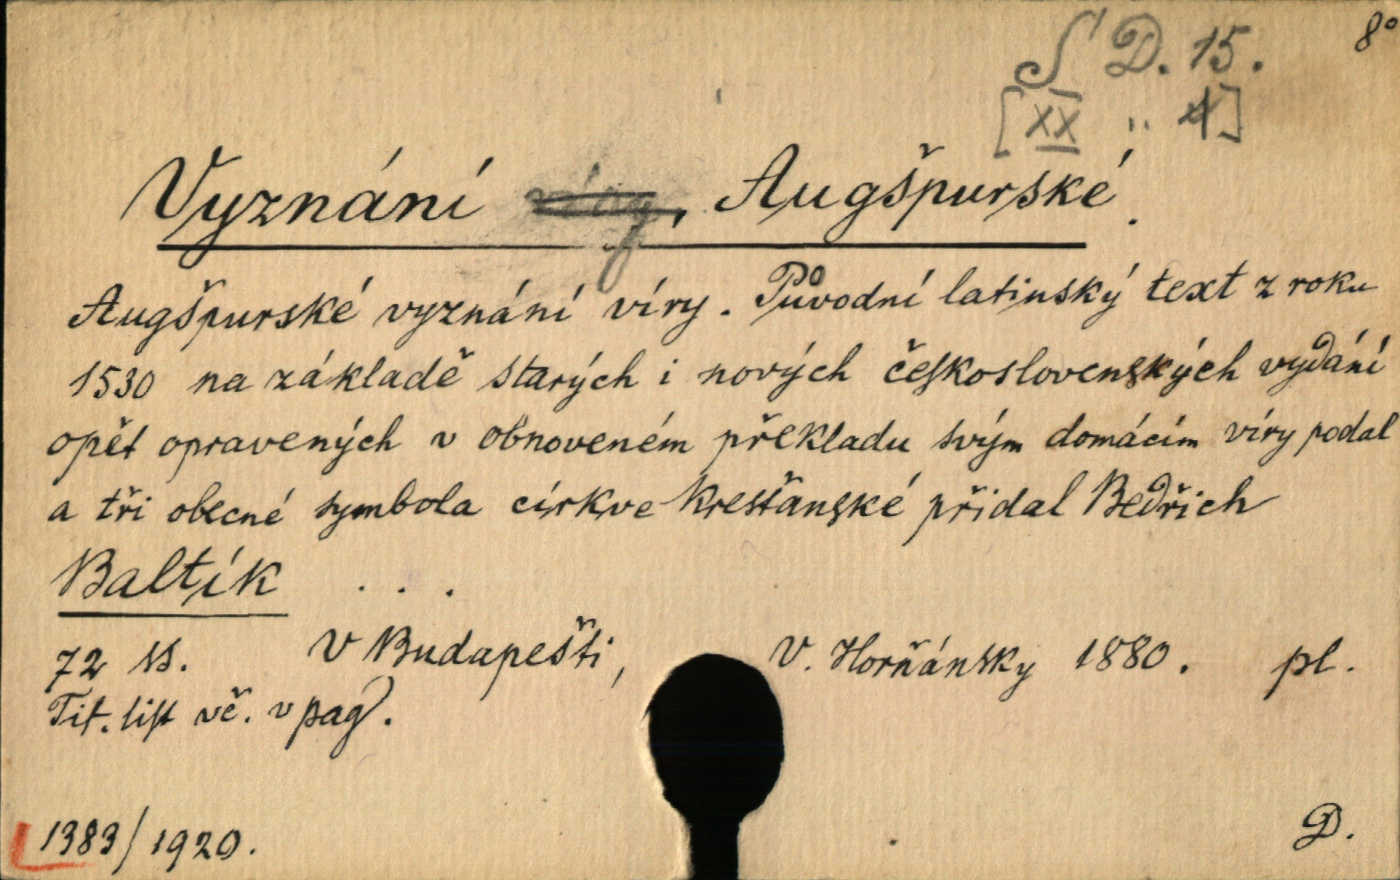 8°
S D. 15.
[XX .. 4]
Vyznání víry, Augšpurské.
Augšpurské vyznání víry. Původní latinský text z roku
1530 na základě starých i nových československých vydání
opět opravených v obnoveném překladu svým domácím víry podal
a tři obecné symbola církve křesťanské přidal Bedřich
Baltík . . .
72 s. V Budapešti, V. Horňánsky 1880. pl.
Tit. list vč. v pag.
1383/1920. D.